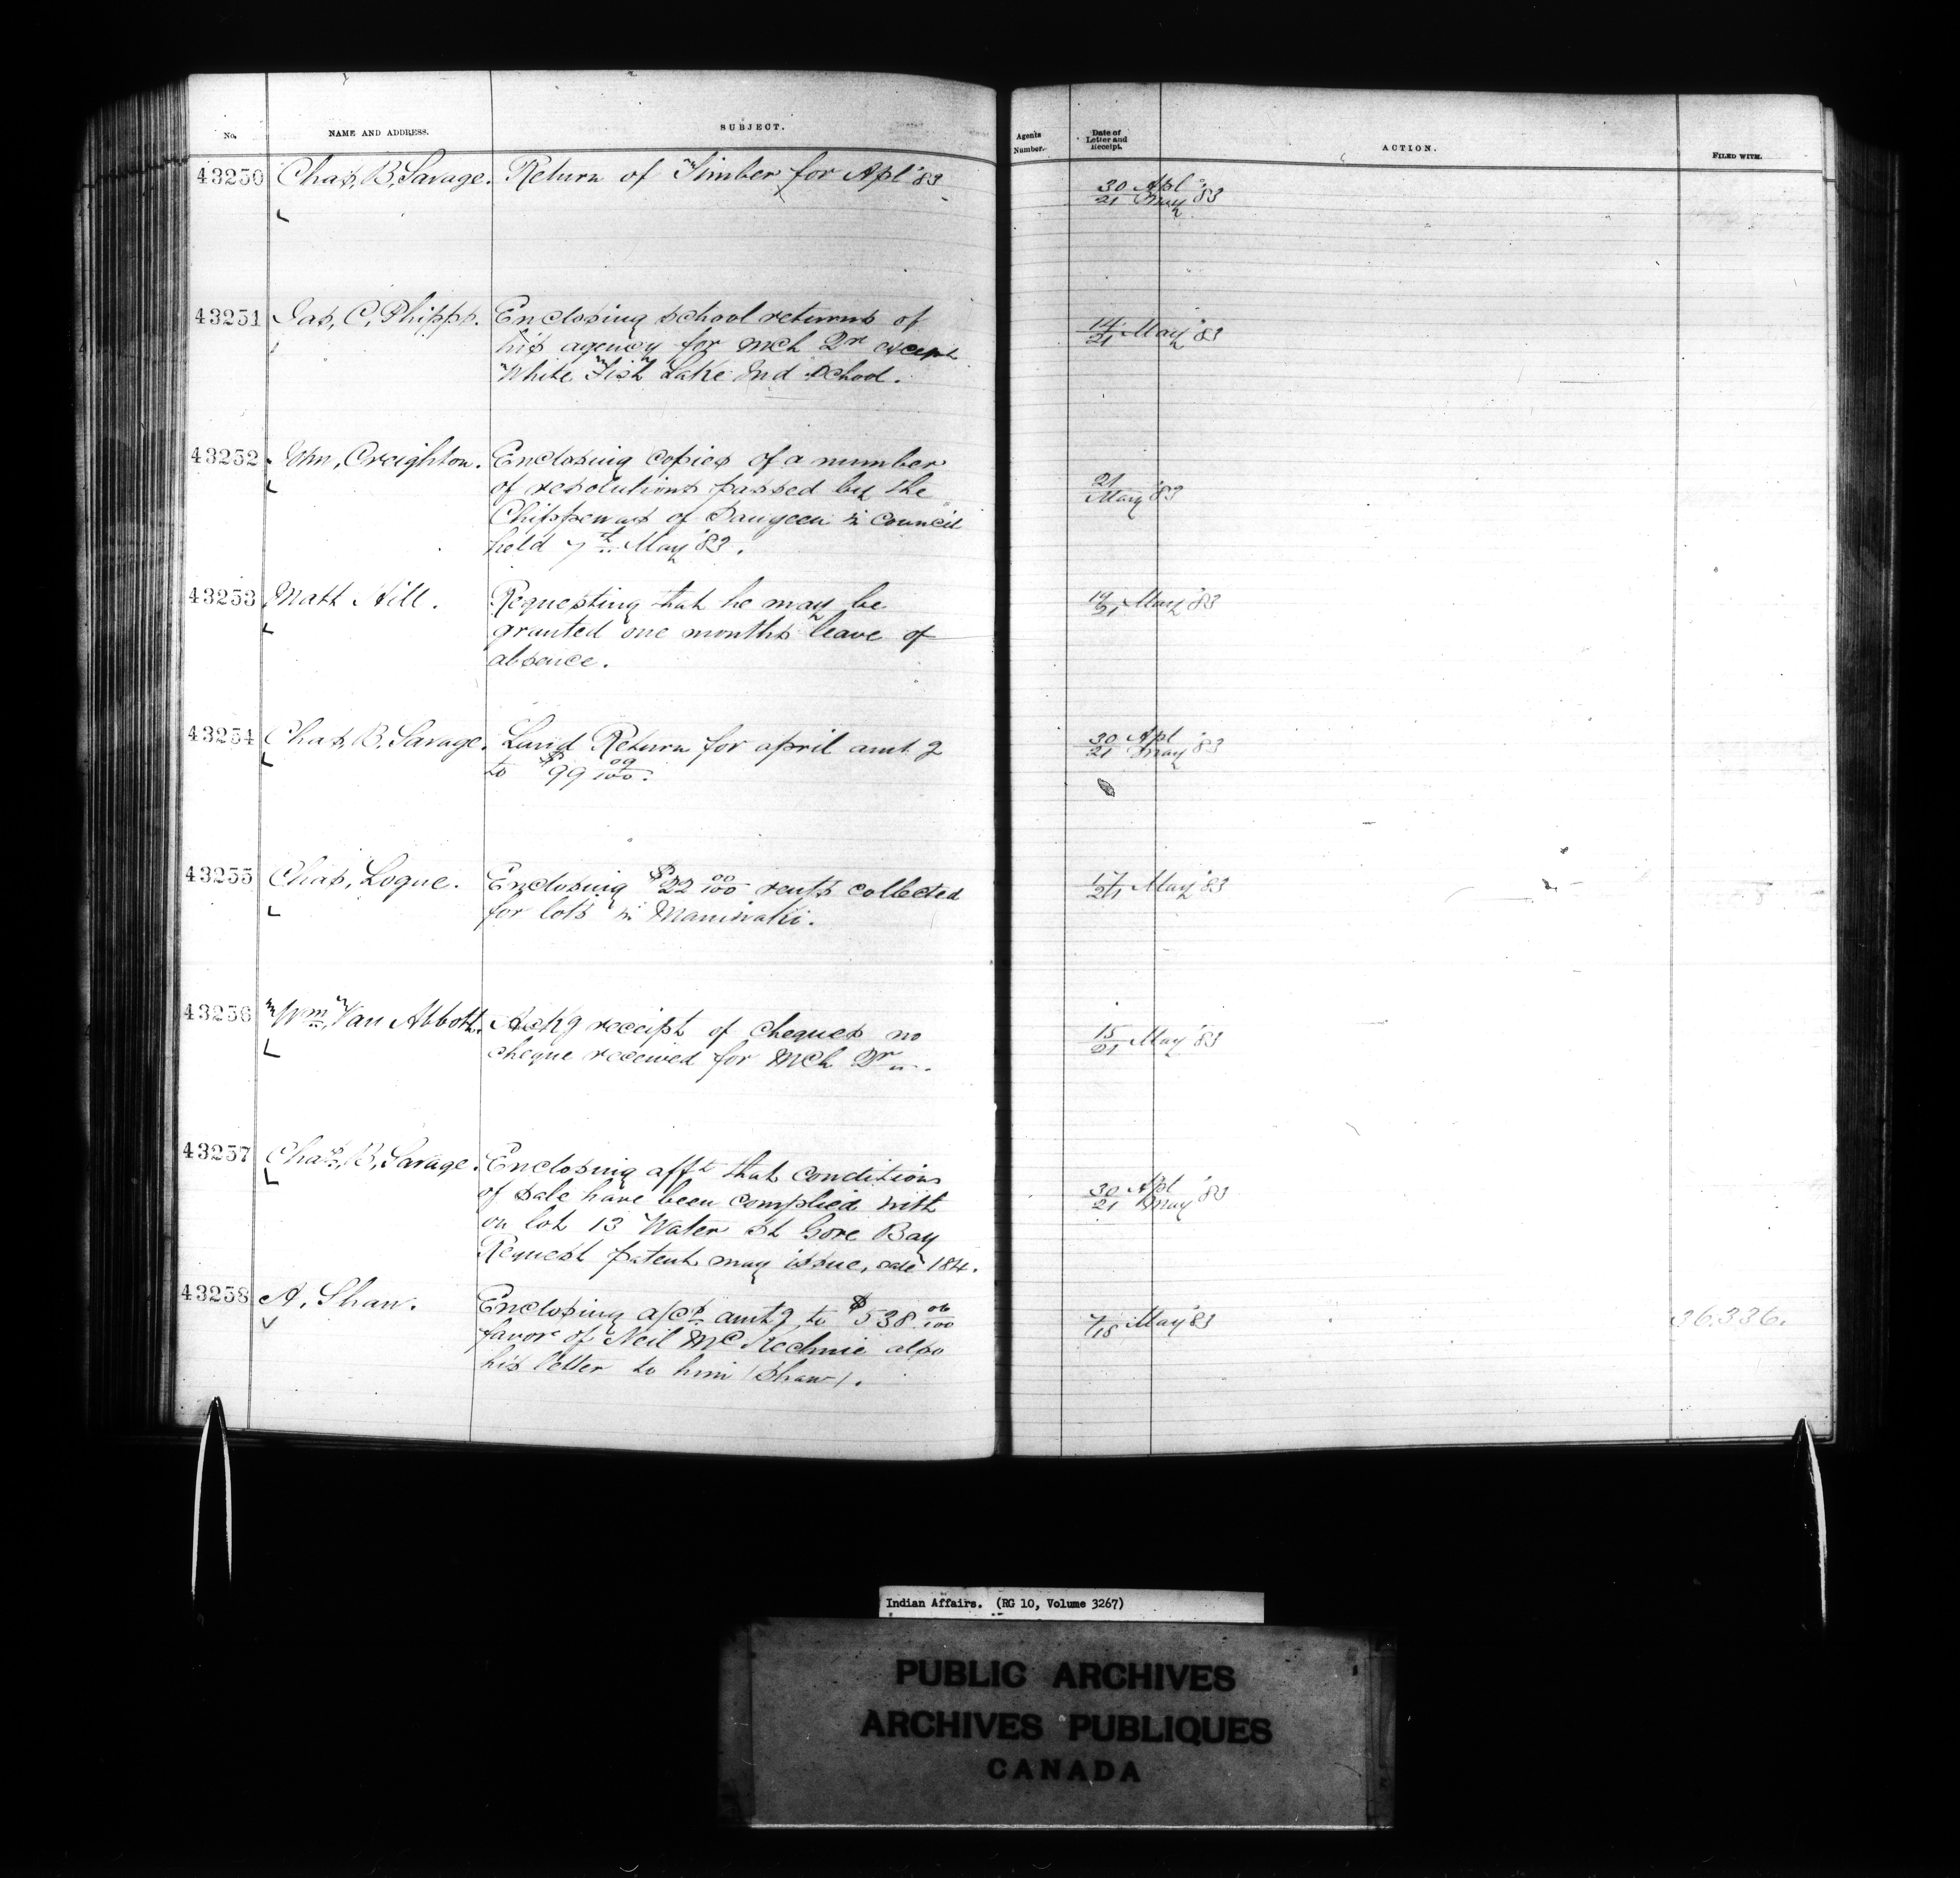 No. NAME AND ADDRESS. SUBJECT. Agents Number. Date of Letter and Receipt. ACTION. FILED WITH.
43250 Chas, B, Savage. Return of Timber for Apl '83 30 Apl '83
21 May
43251 Jas, C, Phipps. Enclosing school returns of 14/21 May '83
his agency for Mch Qr except
White Fish Lake Ind School.
43252 Jhn, Creighton. Enclosing copies of a number 21 May '83
of resolutions passed by the
Chippewas of Saugeen in council
held 7th May '83.
43253 Matt Hill. Requesting that he may be 19/21 May '83
granted one months leave of
absence.
43254 Chas, B, Savage. Land Return for april amt g 30 Apl '83
to $99 09/100. 21 May
43255 Chas, Logue. Enclosing $22 00/100 rents collected 17/21 May '83
for lots in Maniwaki.
43256 Wm, Van Abbott. Ackg receipt of Cheques no 15/21 May '83
cheque received for Mch Qr.
43257 Chas, B, Savage. Enclosing afft that conditions 30 Apl '83
of sale have been complied with 21 May
on lot 13 Water St Gore Bay
Request patent may issue, sale 184.
43258 A, Shaw. Enclosing a/cs amtg to $538 06/100 7/18 May '83 36,336.
favor of Neil McKechnie also
his letter to him (Shaw).
Indian Affairs. (RG 10, Volume 3267)
PUBLIC ARCHIVES
ARCHIVES PUBLIQUES
CANADA